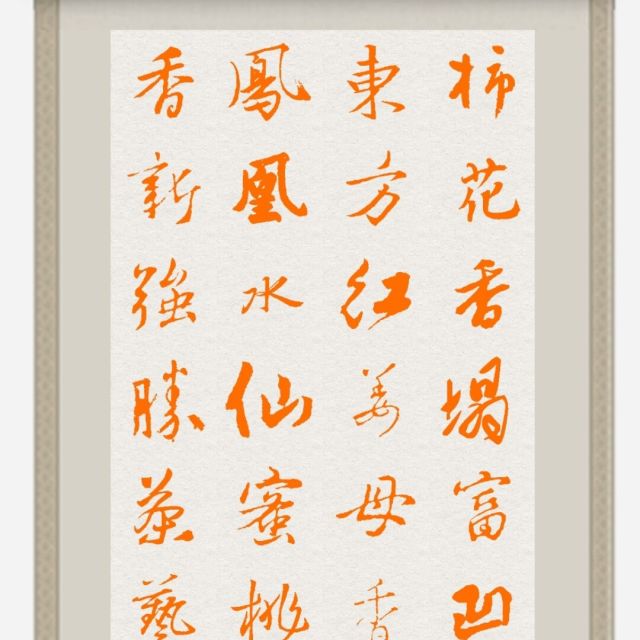 柿花香塌富凹
東方红姜母香
鳳凰水仙蜜桃
香新強勝茶藝